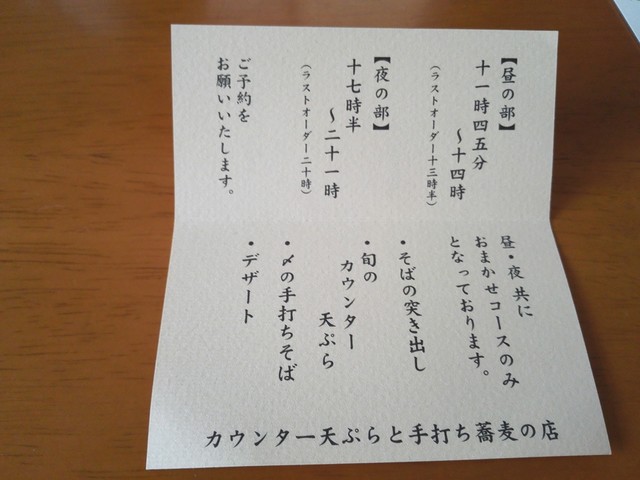 【昼の部】
十一時四五分
～十四時
（ラストオーダー十三時半）
【夜の部】
十七時半
～二十一時
（ラストオーダー二十時）
ご予約を
お願いいたします。
昼・夜 共に
おまかせコースのみ
となっております。
・そばの突き出し
・旬の
カウンター
天ぷら
・〆の手打ちそば
・デザート
カウンター天ぷらと手打ち蕎麦の店